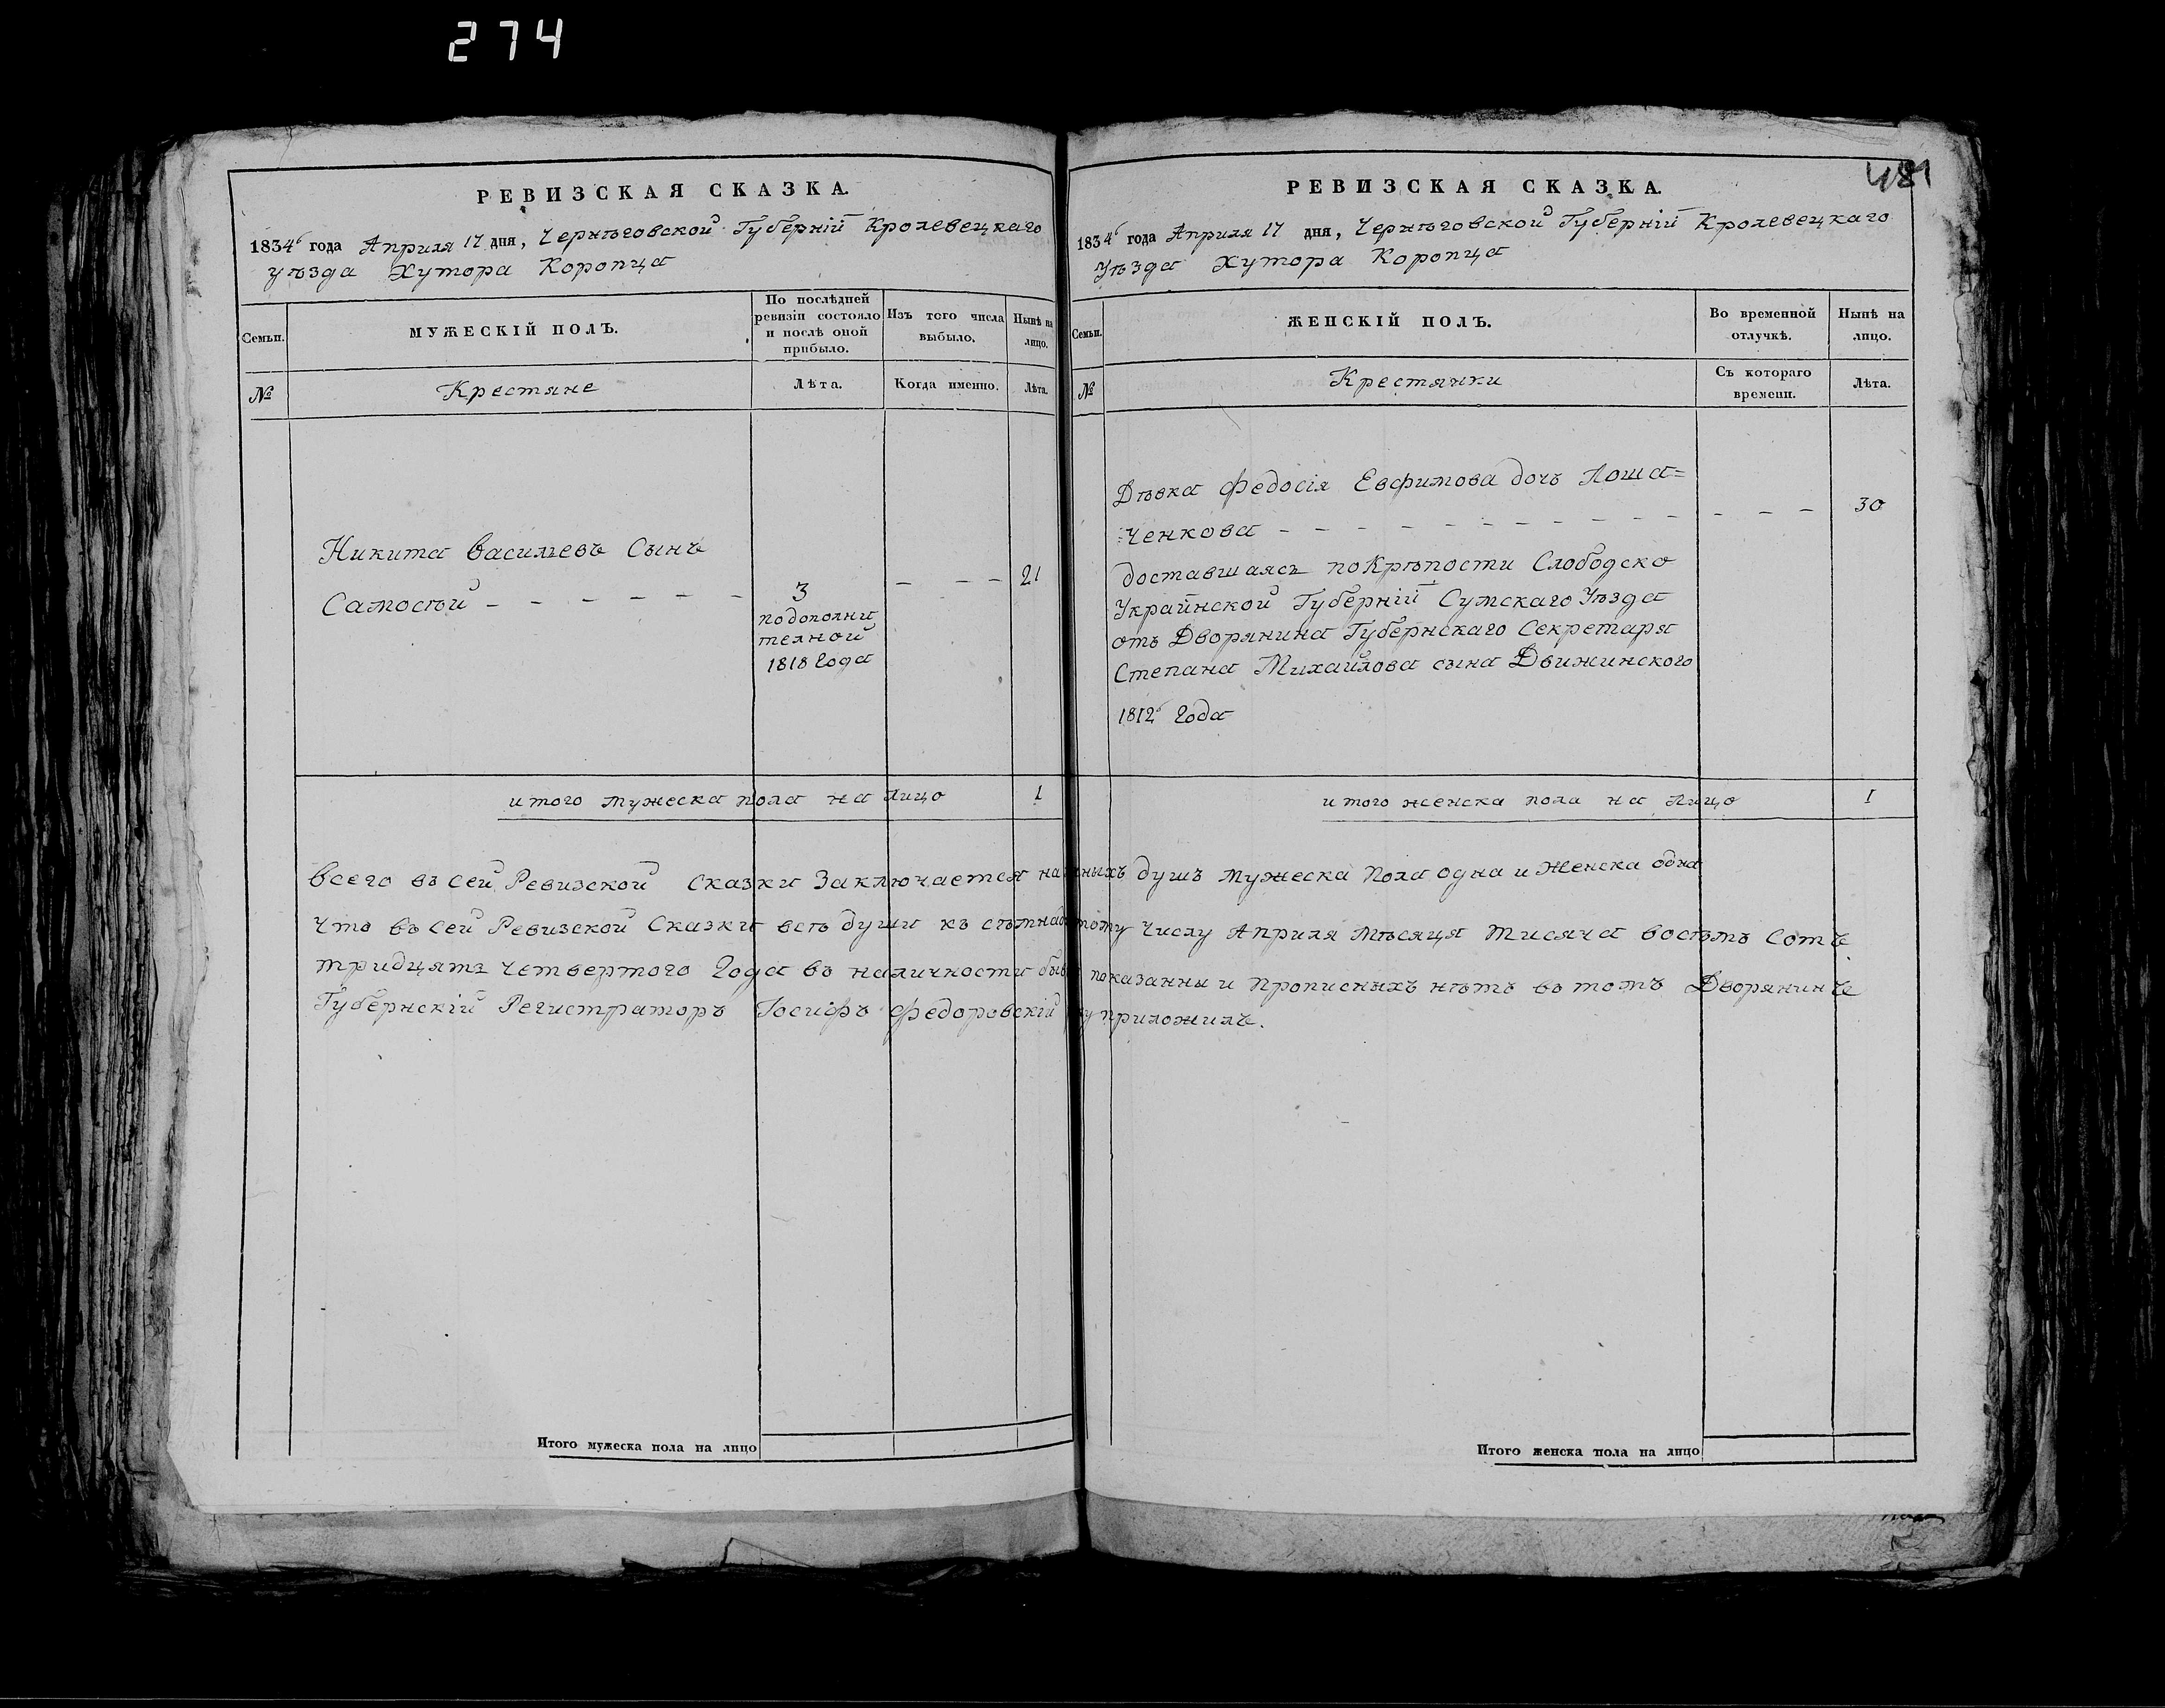 274
481
РЕВИЗСКАЯ СКАЗКА.
1834 года Апреля 17 дня, Чернѣговской Губерніи Кролевецкаго
уѣзда Хутора Коропца
Семьи.
МУЖЕСКІЙ ПОЛЪ.
По послѣдней
ревизіи состояло
и послѣ оной
прибыло.
Изъ того числа
выбыло.
Нынѣ на
лицо.
№
Крестяне
Лѣта.
Когда именно.
Лѣта.
Никита Василевъ Сынъ
Самосѣй - - - - - - - 3 - - - 21
подополни
телной
1818 Года
итого мужеска пола на лицо 1
РЕВИЗСКАЯ СКАЗКА.
1834 года Апреля 17 дня, Чернѣговской Губерніи Кролевецкаго
Уѣзда Хутора Коропца
Семьи.
ЖЕНСКІЙ ПОЛЪ.
Во временной
отлучкѣ.
Нынѣ на
лицо.
№
Крестянки
Съ котораго
времени.
Лѣта.
Дѣвка Федосія Евфимова дочъ Лоша=
ченкова - - - - - - - - - - - - - - - 30
доставшаясъ покрѣпости Слободско
Украйнской Губерніи Сумскаго Уѣзда
отъ Дворянина Губернскаго Секретаря
Степана Михайлова сына Движинского
1812 Года
итого женска пола на лицо 1
всего въ сей Ревизской сказки Заключается душъ мужеска пола одна и Женска одна
что въ сей Ревизской Сказки всѣ души къ числу Априля мѣсяця тисяча восѣмъ сотъ
тридцятъ четвертого Года въ наличности показанны и прописныхъ нѣтъ въ томъ Дворянинъ
Губернскій Регистраторъ Іосифъ Федоровскій приложилъ.
Итого мужеска пола на лицо
Итого женска пола на лицо